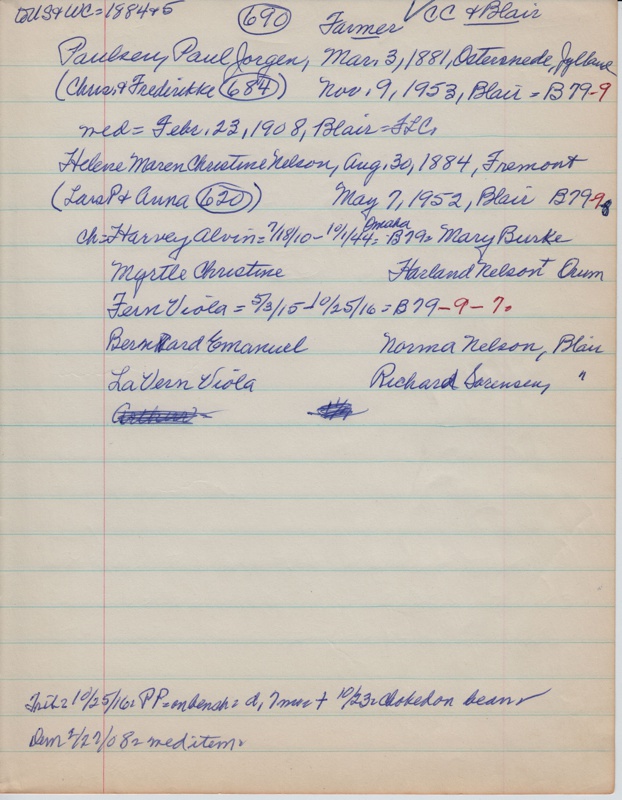 to US & WC = 1884 & 5 690 Farmer VCC & Blair
Paulsen, Paul Jorgen, Mar. 3, 1881, Ostersnede, Jylland
(Chris. & Fredirikke 684) Nov. 9, 1953, Blair = B79-9
med = Febr. 23, 1908, Blair = FLC.
Helene Maren Christine Nelson, Aug. 30, 1884, Fremont
(Lars P & Anna 620) May 7, 1952, Blair B79-9
ch = Harvey Alvin = 7/18/10 - 10/1/44 = Omaha B79 = Mary Burke
Myrtle Christine Harland Nelson Orum
Fern Viola = 5/3/15 - 10/25/16 = B79-9-7.
Bernhard Emanuel Norma Nelson, Blair
La Vern Viola Richard Sorensen, "
Trib = 10/25/16 = PP = d, 7 mos + 10/23 = choked on bean
Dem 2/27/08 = med item